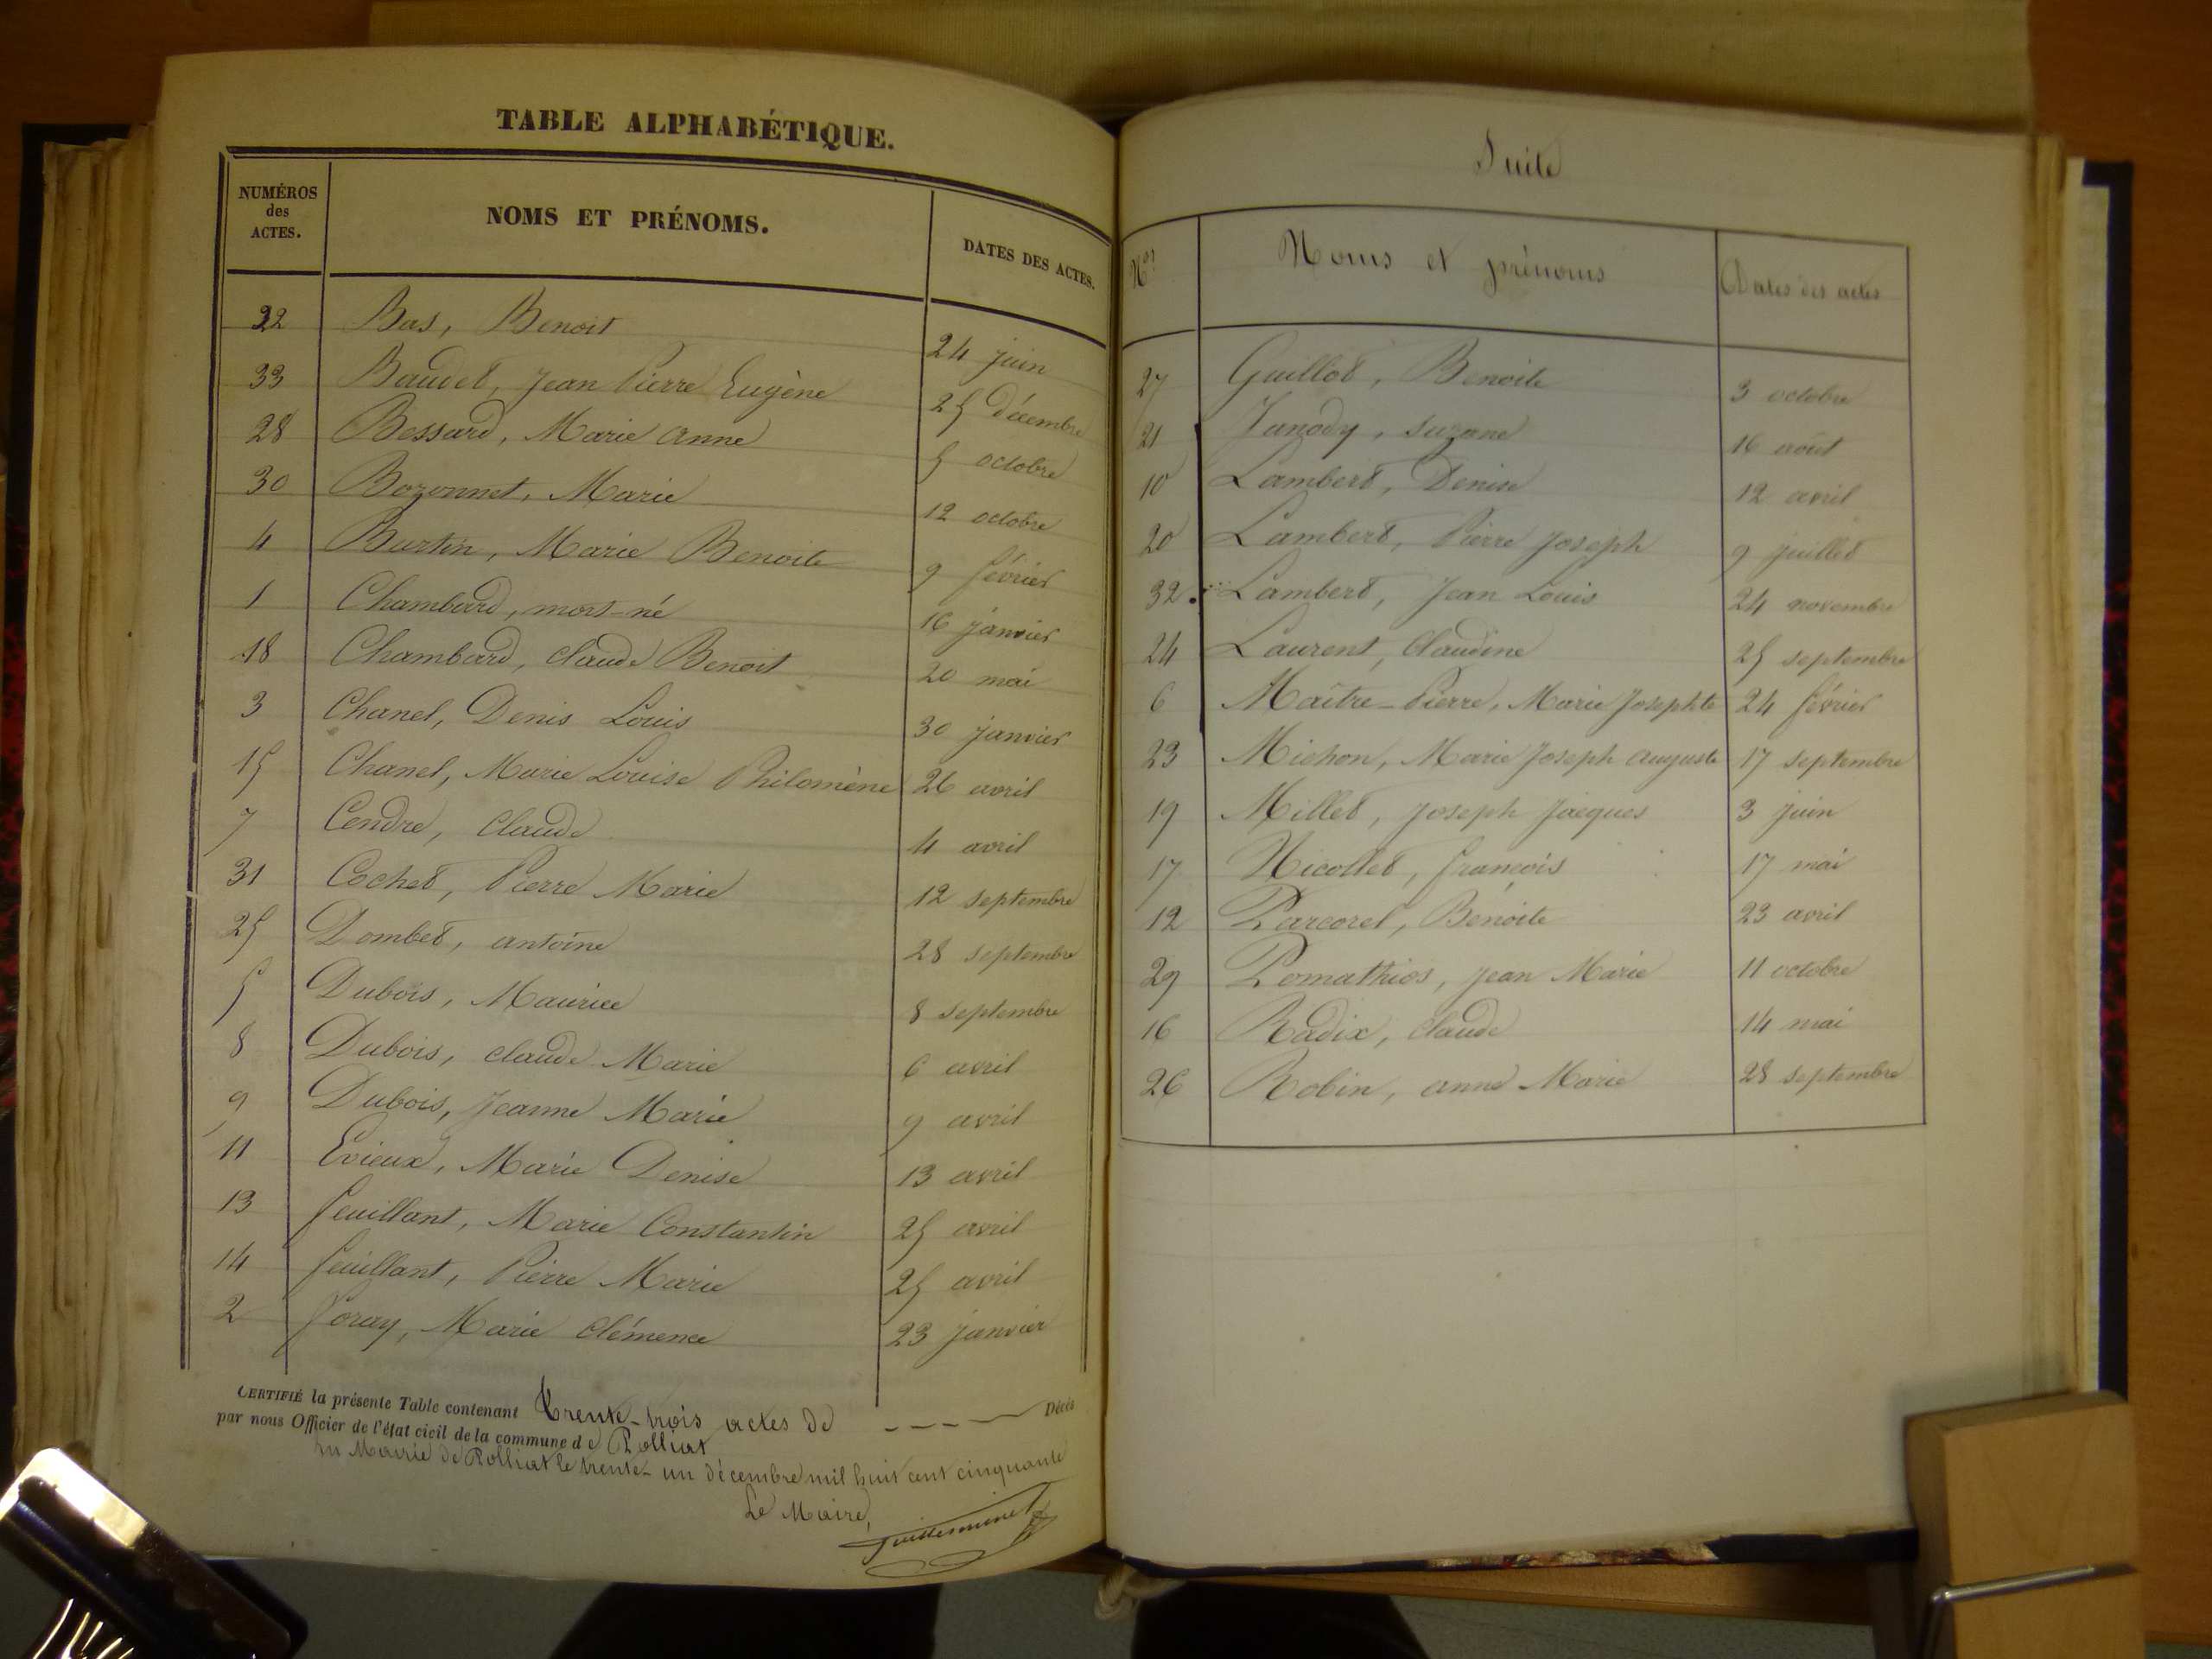 TABLE ALPHABÉTIQUE.
NUMÉROS des ACTES. NOMS ET PRÉNOMS. DATES DES ACTES.
22 Bas, Benoit 24 juin
33 Baudet, Jean Pierre Eugène 25 décembre
28 Bessard, Marie anne 5 octobre
30 Bozonnet, Marie 12 octobre
4 Burtin, Marie Benoite 9 février
1 Chambard, mort-né 16 janvier
18 Chambard, claude Benoit 20 mai
3 Chanel, Denis Louis 30 janvier
15 Chanel, Marie Louise Philomène 26 avril
7 Cendre, Claude 4 avril
31 Cochet, Pierre Marie 12 septembre
25 Dombet, antoine 28 septembre
5 Dubois, Maurice 8 septembre
8 Dubois, claude Marie 6 avril
9 Dubois, Jeanne Marie 9 avril
11 Evieux, Marie Denise 13 avril
13 feuillant, Marie Constantin 25 avril
14 feuillant, Pierre Marie 25 avril
2 foray, Marie Clémence 23 janvier
CERTIFIÉ la présente Table contenant trente-trois actes de Décès
par nous Officier de l'état civil de la commune de Polliat
En Mairie de Polliat le trente-un décembre mil huit cent cinquante
Le Maire,
Suite
Nos Noms et prénoms Dates des actes
27 Guillot, Benoite 3 octobre
21 Janody, suzane 16 août
10 Lambert, Denise 12 avril
20 Lambert, Pierre Joseph 9 juillet
32 Lambert, Jean Louis 24 novembre
24 Laurent, Claudine 25 septembre
6 Maître-Pierre, Marie Josephte 24 février
23 Michon, Marie Joseph auguste 17 septembre
19 Millet, Joseph Jacques 3 juin
17 Nicollet, françois 17 mai
12 Parcorel, Benoite 23 avril
29 Pomathios, Jean Marie 11 octobre
16 Radix, Claude 14 mai
26 Robin, anne Marie 28 septembre